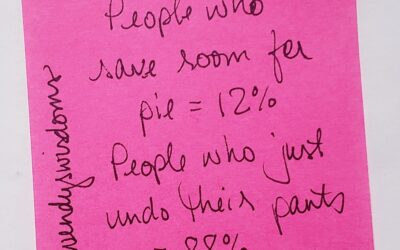 People who
save room for
pie = 12%
People who just
undo their pants
= 88%
wendyswisdoms